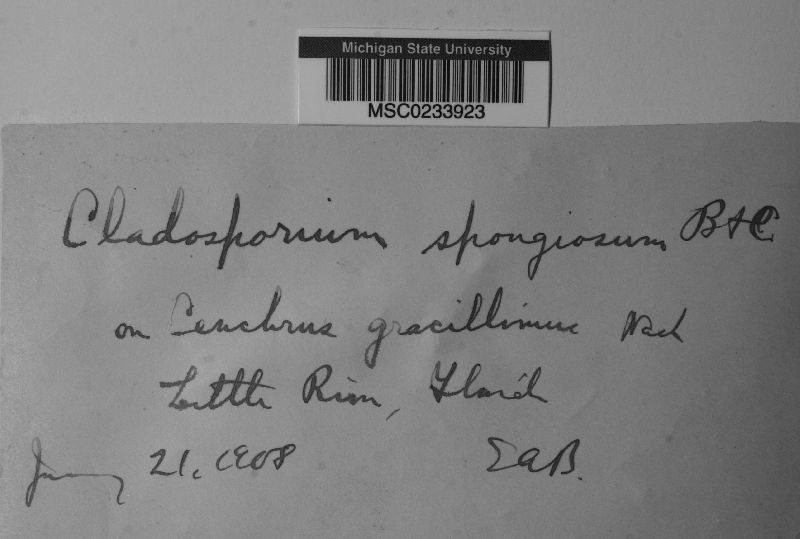 Michigan State University
MSC0233923
Cladosporium spongiosum B+C
on Cenchrus gracillimus Nash
Little River, Florida
21, 1908 EAB.